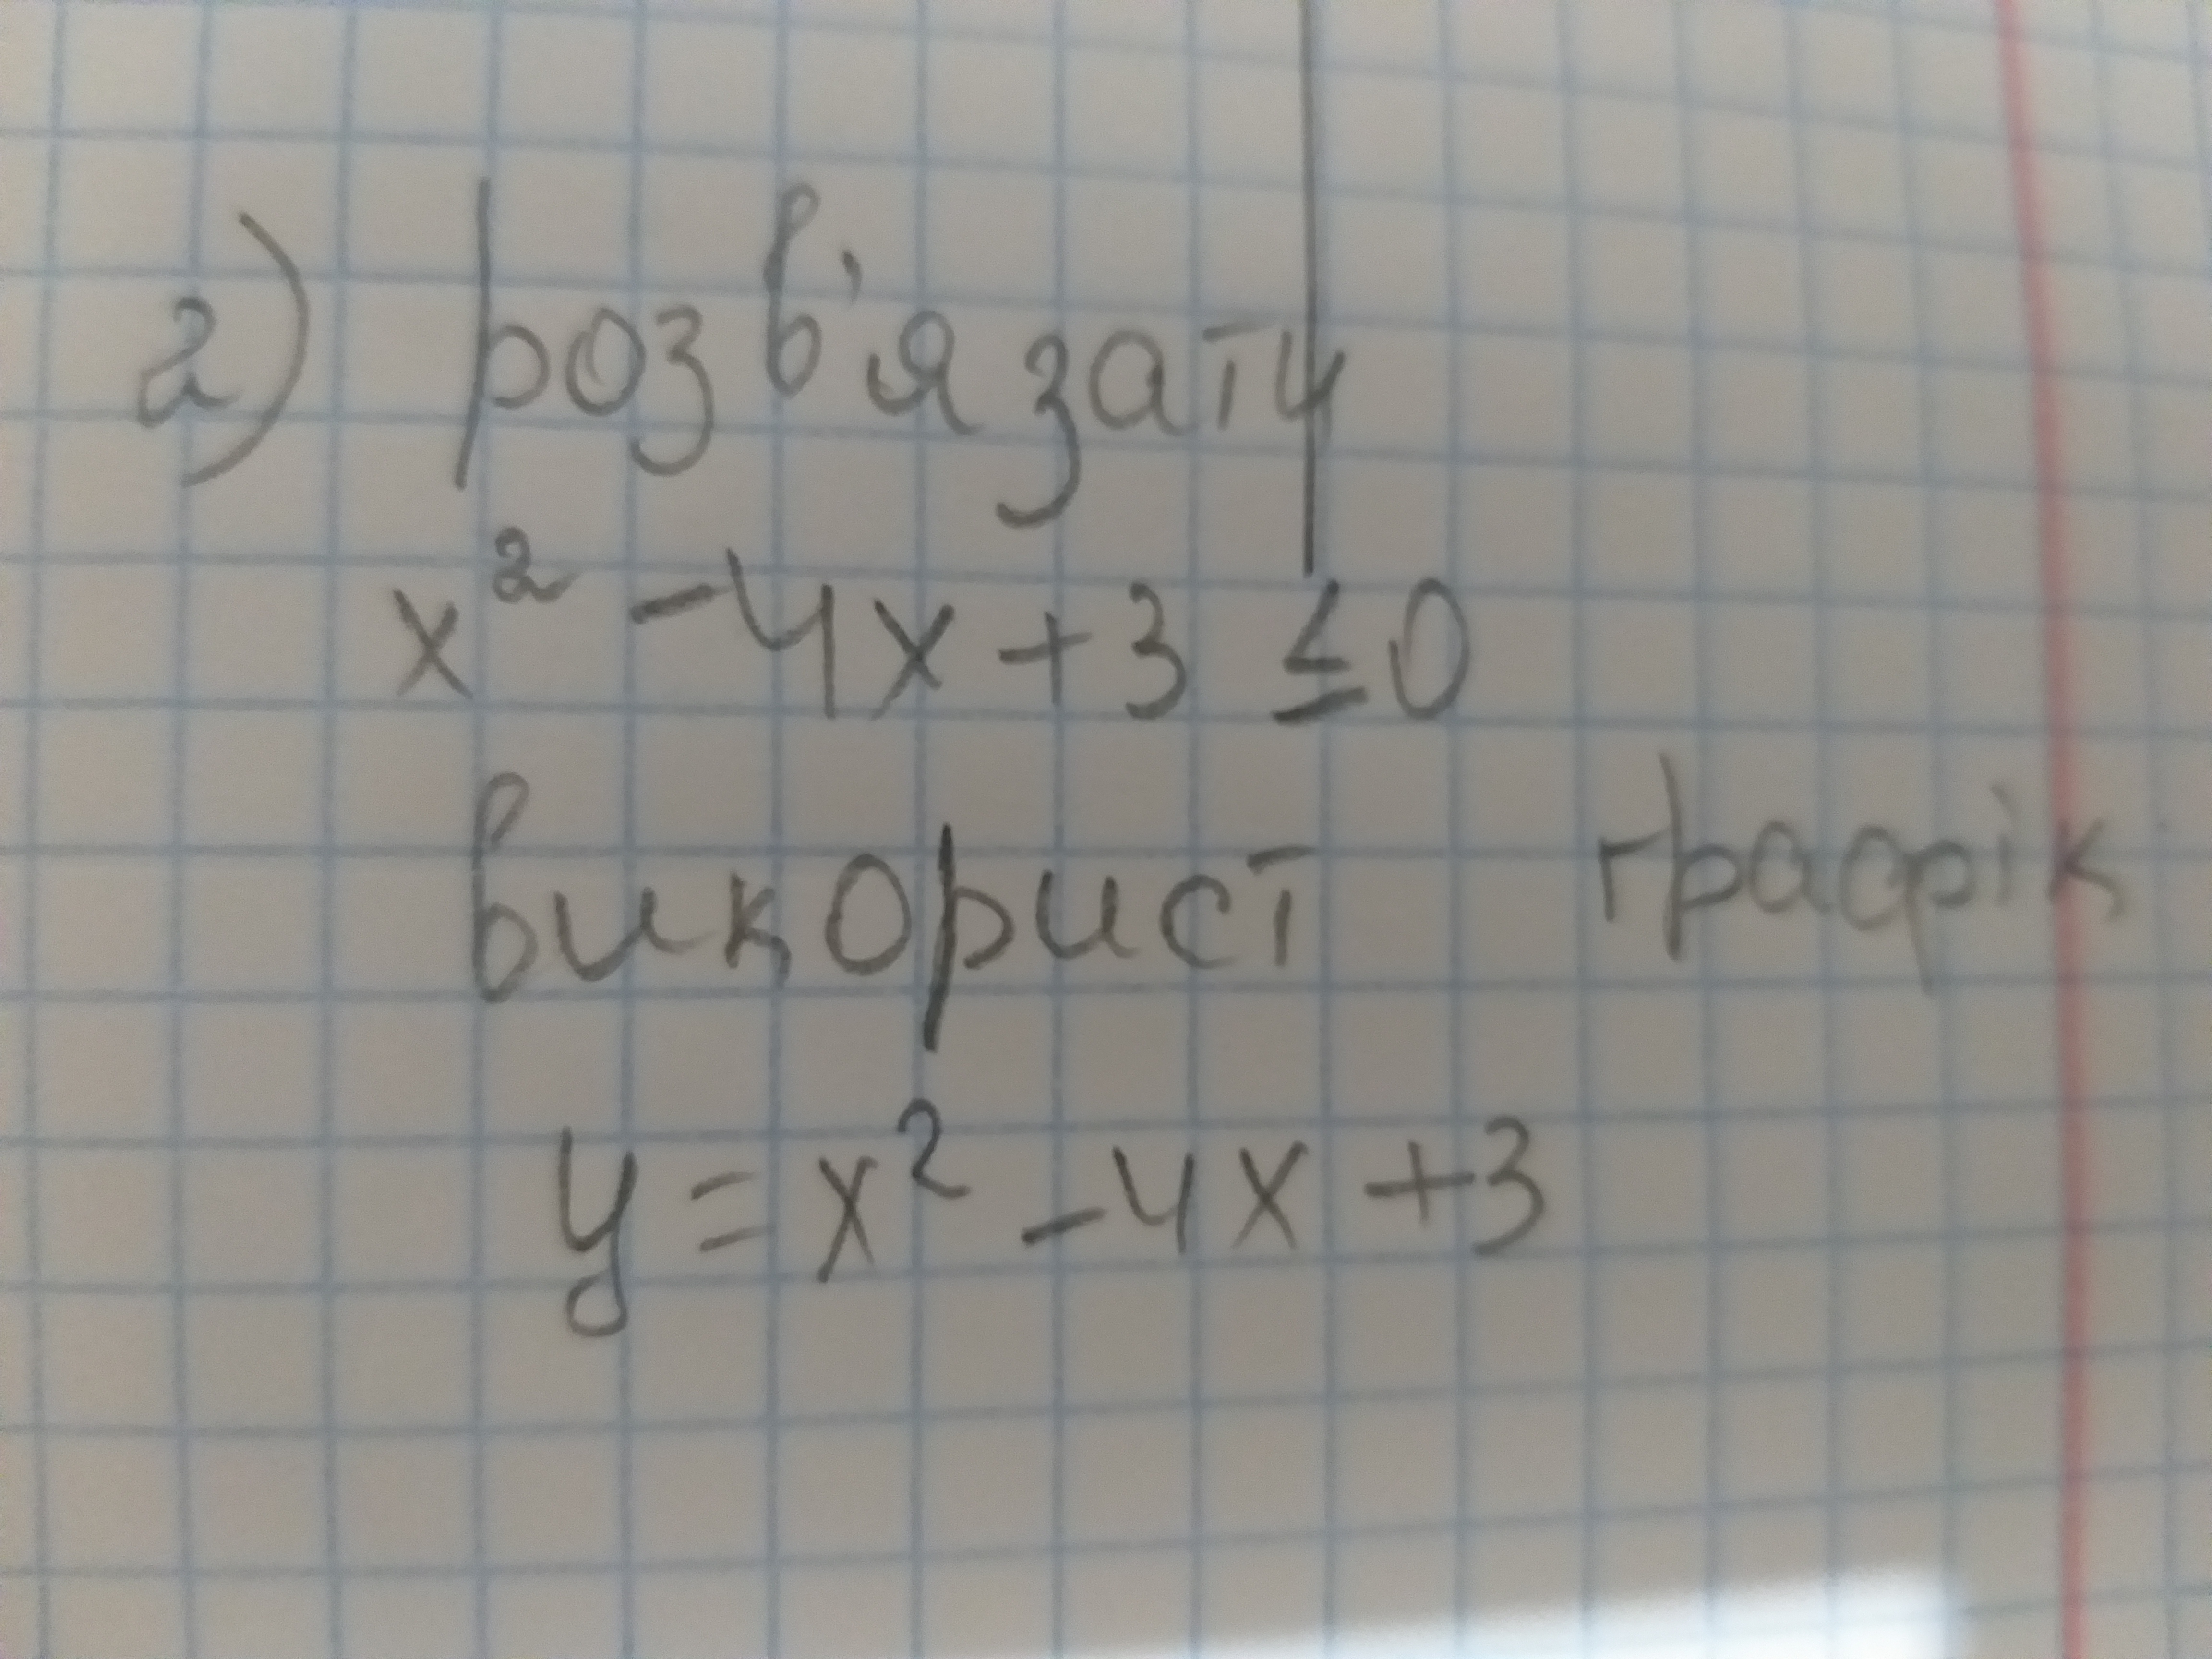 2) розв'язати
x² - 4x + 3 ≤ 0
використ графік
y = x² - 4x + 3